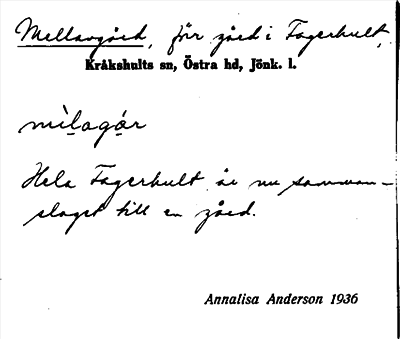 Mellangård, förr gård i Fagerhult,
Kråkshults sn, Östra hd, Jönk. l.
mìlagár
Hela Fagerhult är nu samman-
slaget till en gård.
Annalisa Anderson 1936